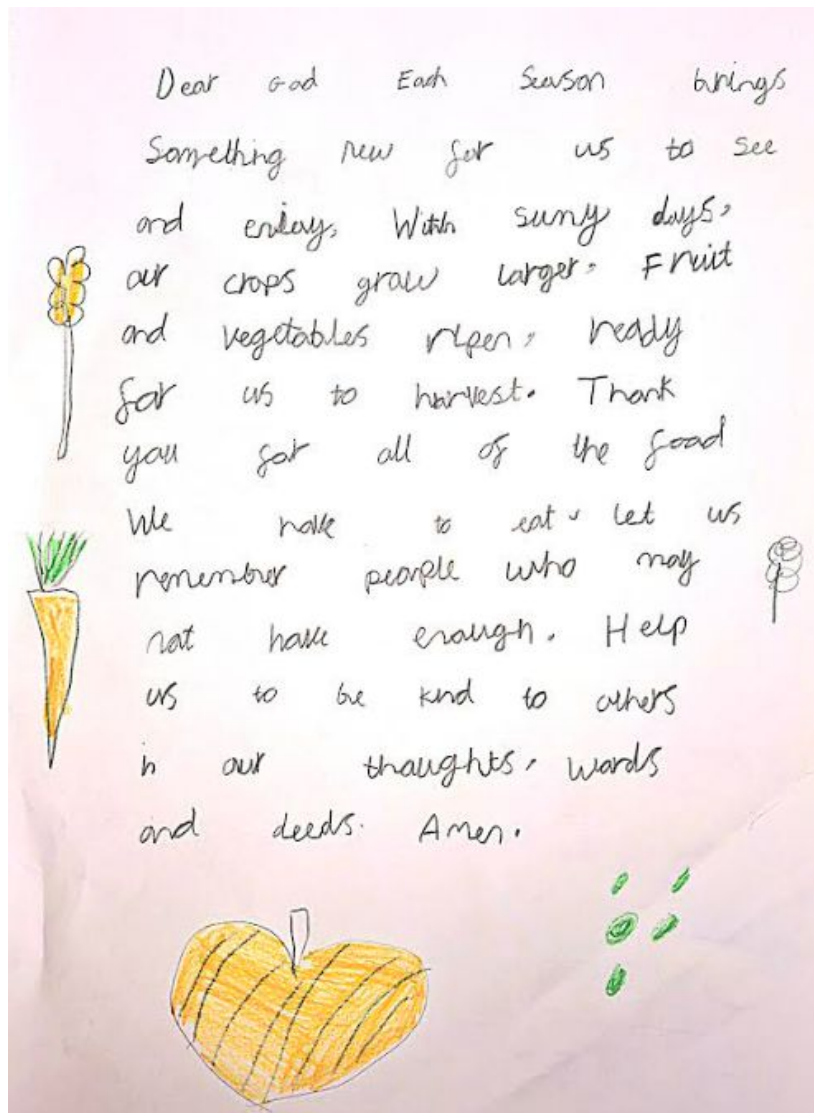 Dear God Each Season brings
Something new for us to see
and enjoy, With sunny days,
our crops grow larger, Fruit
and vegetables ripen, ready
for us to harvest. Thank
you for all of the food
We have to eat, let us
remember people who may
not have enough. Help
us to be kind to others
in our thoughts, words
and deeds. Amen.